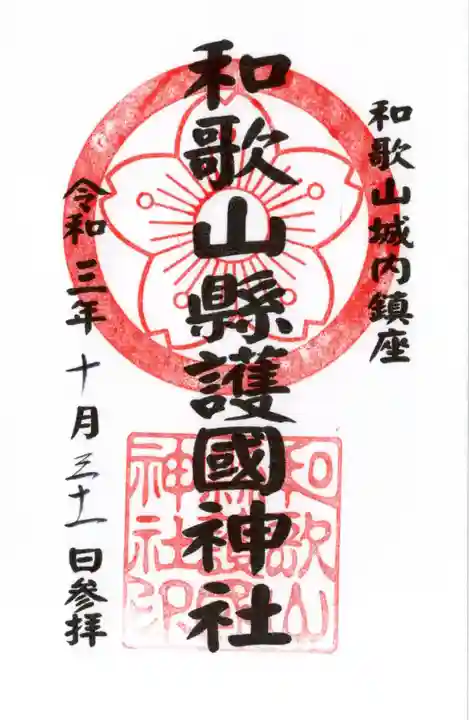 和歌山城内鎮座
和歌山縣護國神社
令和三年十月三十一日参拝
和歌山
縣護國
神社印